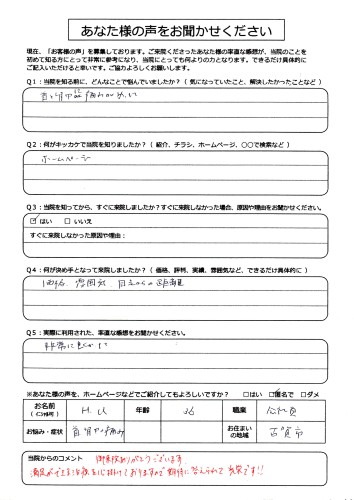 あなた様の声をお聞かせください
現在、「お客様の声」を募集しております。ご来院くださったあなた様の率直な感想が、当院のことを
初めて知る方にとって非常に参考になり、当院にとっても何よりの力となります。できるだけ具体的に
ご記入いただけると幸いです。ご協力よろしくお願いします。
Q1:当院を知る前に、どんなことで悩んでいましたか?(気になっていたこと、解決したかったことなど)
首と背中に痛みがあって
Q2:何がキッカケで当院を知りましたか?(紹介、チラシ、ホームページ、〇〇で検索など)
ホームページ
Q3:当院を知ってから、すぐに来院しましたか?すぐに来院しなかった場合、原因や理由をお聞かせください。
☑ はい □ いいえ
すぐに来院しなかった原因や理由:
Q4:何が決め手となって来院しましたか?(価格、評判、実績、雰囲気など、できるだけ具体的に)
価格、雰囲気 自宅からの距離
Q5:実際に利用された、率直な感想をお聞かせください。
非常に良かった
※あなた様の声を、ホームページなどでご紹介してもよろしいですか? □はい ☑匿名で □ダメ
お名前
(イニシャル可)
H.U
年齢
36
職業
会社員
お悩み・症状
首 背中の痛み
お住まい
の地域
古賀市
当院からのコメント
御来院ありがとうございます。